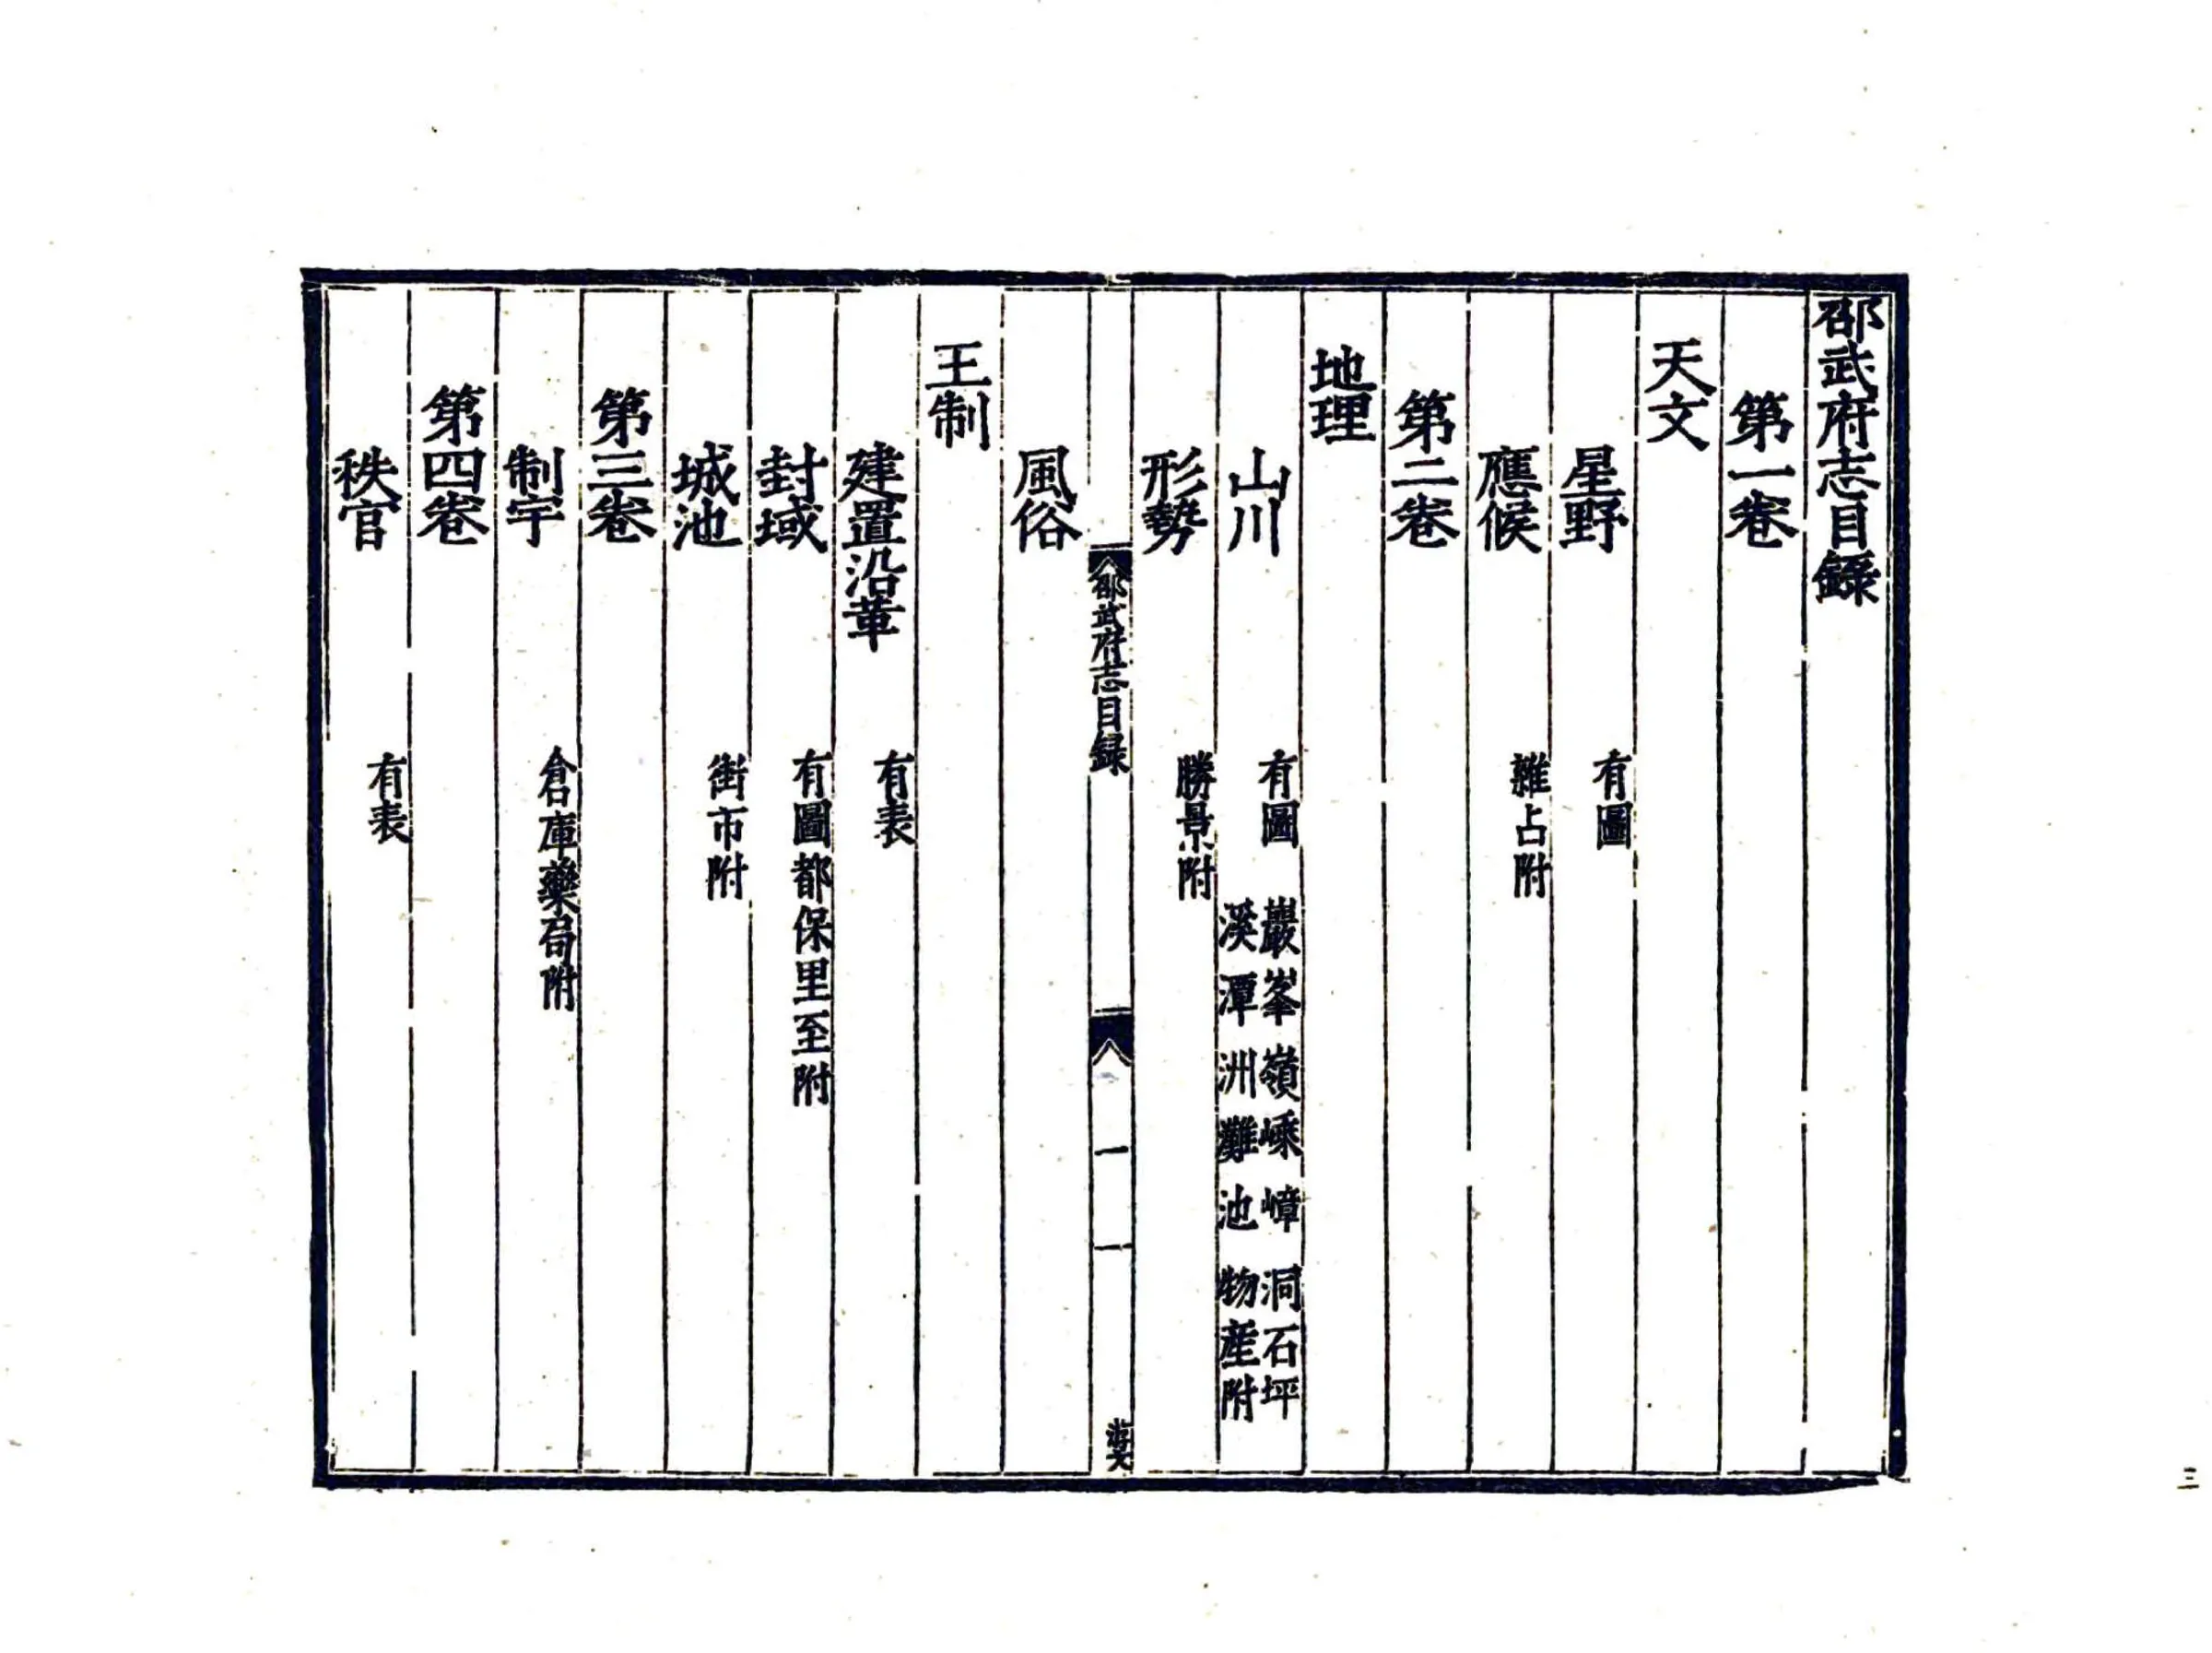 邵武府志目錄
第一卷
天文
星野 有圖
應候 雜占附
第二卷
地理
山川 有圖 巖峯嶺嵊嶂洞石坪
溪潭洲灘池物產附
形勢 勝景附
邵武府志目録
一
風俗
王制
建置沿革 有表
封域 有圖都保里至附
城池 街市附
第三卷
制宇 倉庫藥局附
第四卷
秩官 有表
三